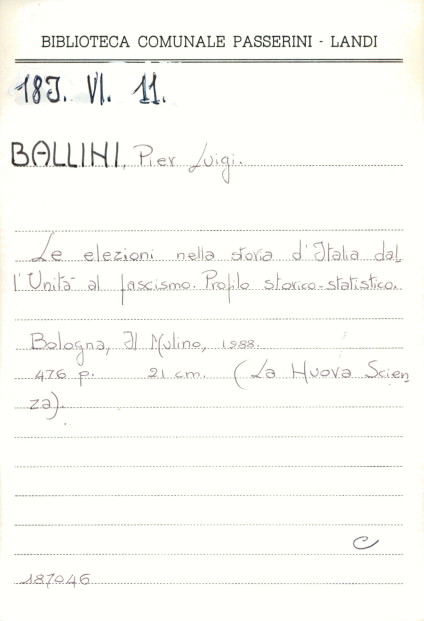 BIBLIOTECA COMUNALE PASSERINI - LANDI
18J. VI. 11.
BALLINI, Pier Luigi.
Le elezioni nella storia d'Italia dal
l'Unità al fascismo. Profilo storico-statistico.
Bologna, Il Mulino, 1988.
476 p. 21 cm. (La Nuova Scien
za).
C
187046